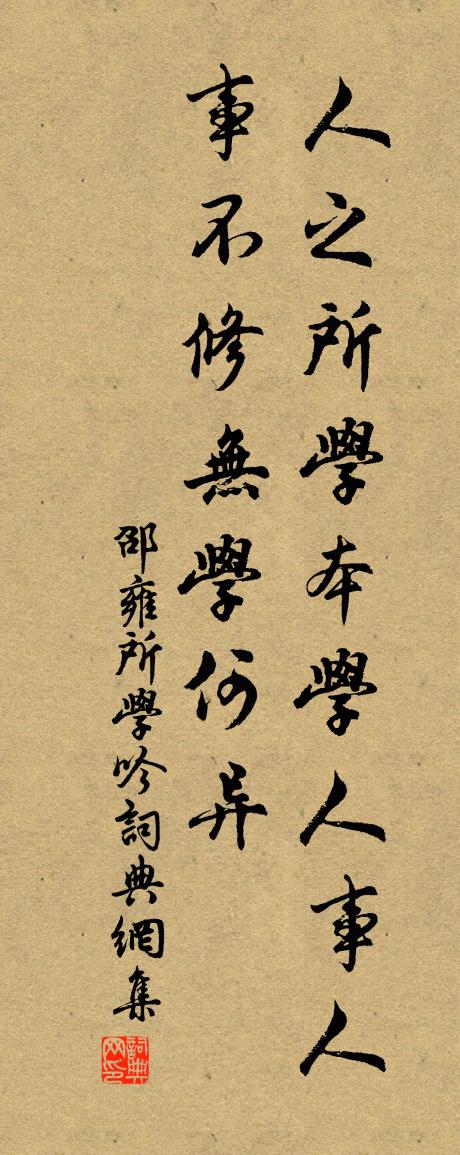 人之所學本學人事人
事不修無學何异
邵雍所學吟詞典網集
詞典网印